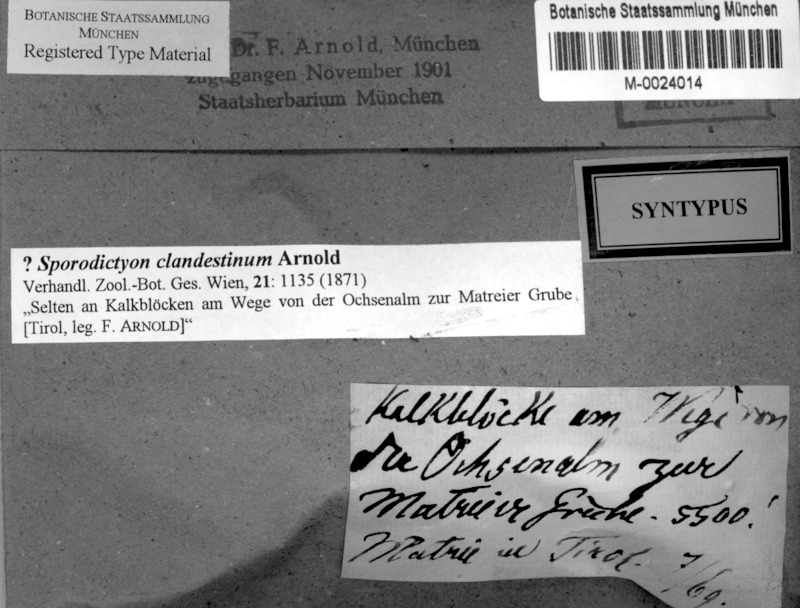 BOTANISCHE STAATSSAMMLUNG
MÜNCHEN
Registered Type Material
Dr. F. Arnold, München
zugegangen November 1901
Staatsherbarium München
Botanische Staatssammlung München
M-0024014
SYNTYPUS
? Sporodictyon clandestinum Arnold
Verhandl. Zool.-Bot. Ges. Wien, 21: 1135 (1871)
„Selten an Kalkblöcken am Wege von der Ochsenalm zur Matreier Grube
[Tirol, leg. F. ARNOLD]“
Kalkblöcke am Wege von
der Ochsenalm zur
Matreier Grube - 5500'.
Matrei in Tirol. 7/69